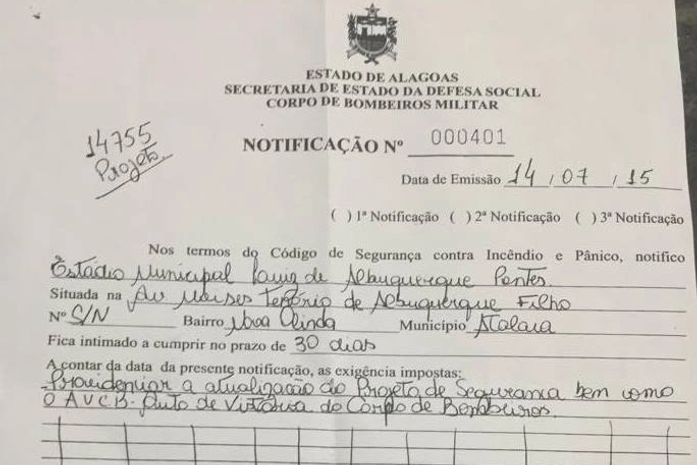 ESTADO DE ALAGOAS
SECRETARIA DE ESTADO DA DEFESA SOCIAL
CORPO DE BOMBEIROS MILITAR
14755
Projeto
NOTIFICAÇÃO Nº 000401
Data de Emissão 14 / 07 / 15
( ) 1ª Notificação ( ) 2ª Notificação ( ) 3ª Notificação
Nos termos do Código de Segurança contra Incêndio e Pânico, notifico
Estádio Municipal Luiz de Albuquerque Pontes.
Situada na Av Moises Tenório de Albuquerque Filho
Nº S/N Bairro Nova Olinda Município Atalaia
Fica intimado a cumprir no prazo de 30 dias
A contar da data da presente notificação, as exigência impostas:
Providenciar a atualização do Projeto de Segurança bem como
O AVCB - Auto de Vistoria do Corpo de Bombeiros.